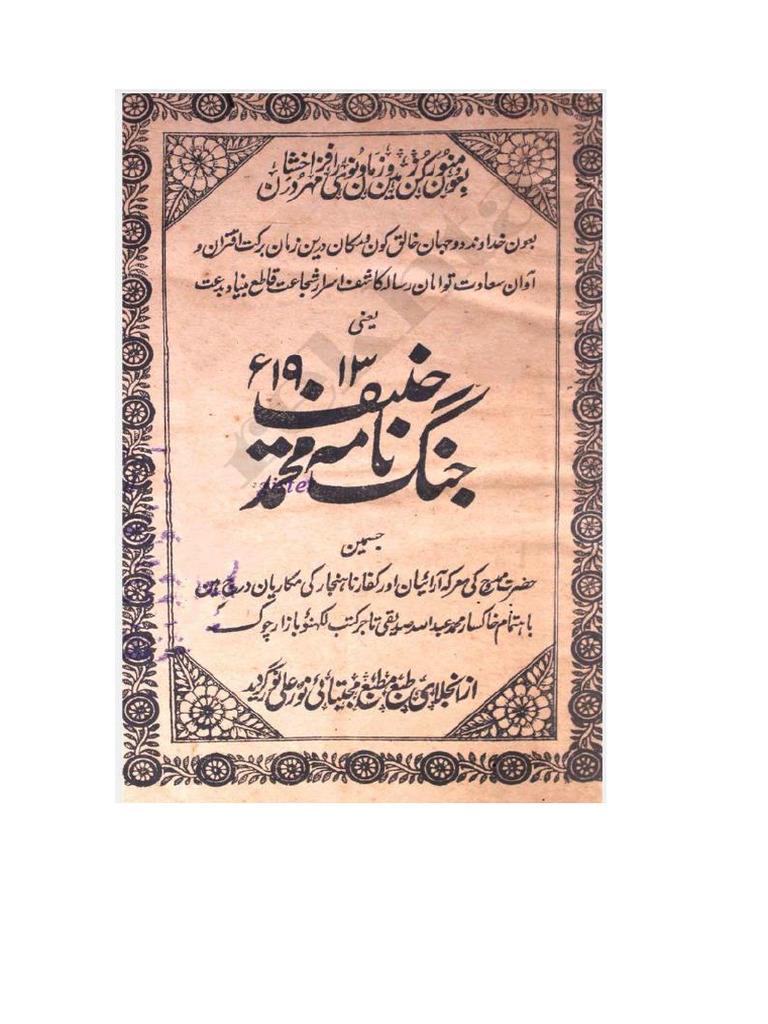 بعون منور کن
بعون خداوند دو جہان خالق کون و مکان درین زمان برکت اقتران و
آوان سعادت توامان رسالہ کاشف اسرار شجاعت قاطع بنیاد بدعت
یعنی
۱۹۱۳ء
جنگ نامہ محمد حنیف
جسمین
حضرت مسیح کی معرکہ آرائیان اور کفار ناہنجار کی مکاریان درج ہین
باہتمام خاکسار محمد عبداللہ صدیقی تاجر کتب لکھنؤ بازار چوک
از انجلاہی طبع مطبع مجتبائی نور علی نور گردید
rekhta